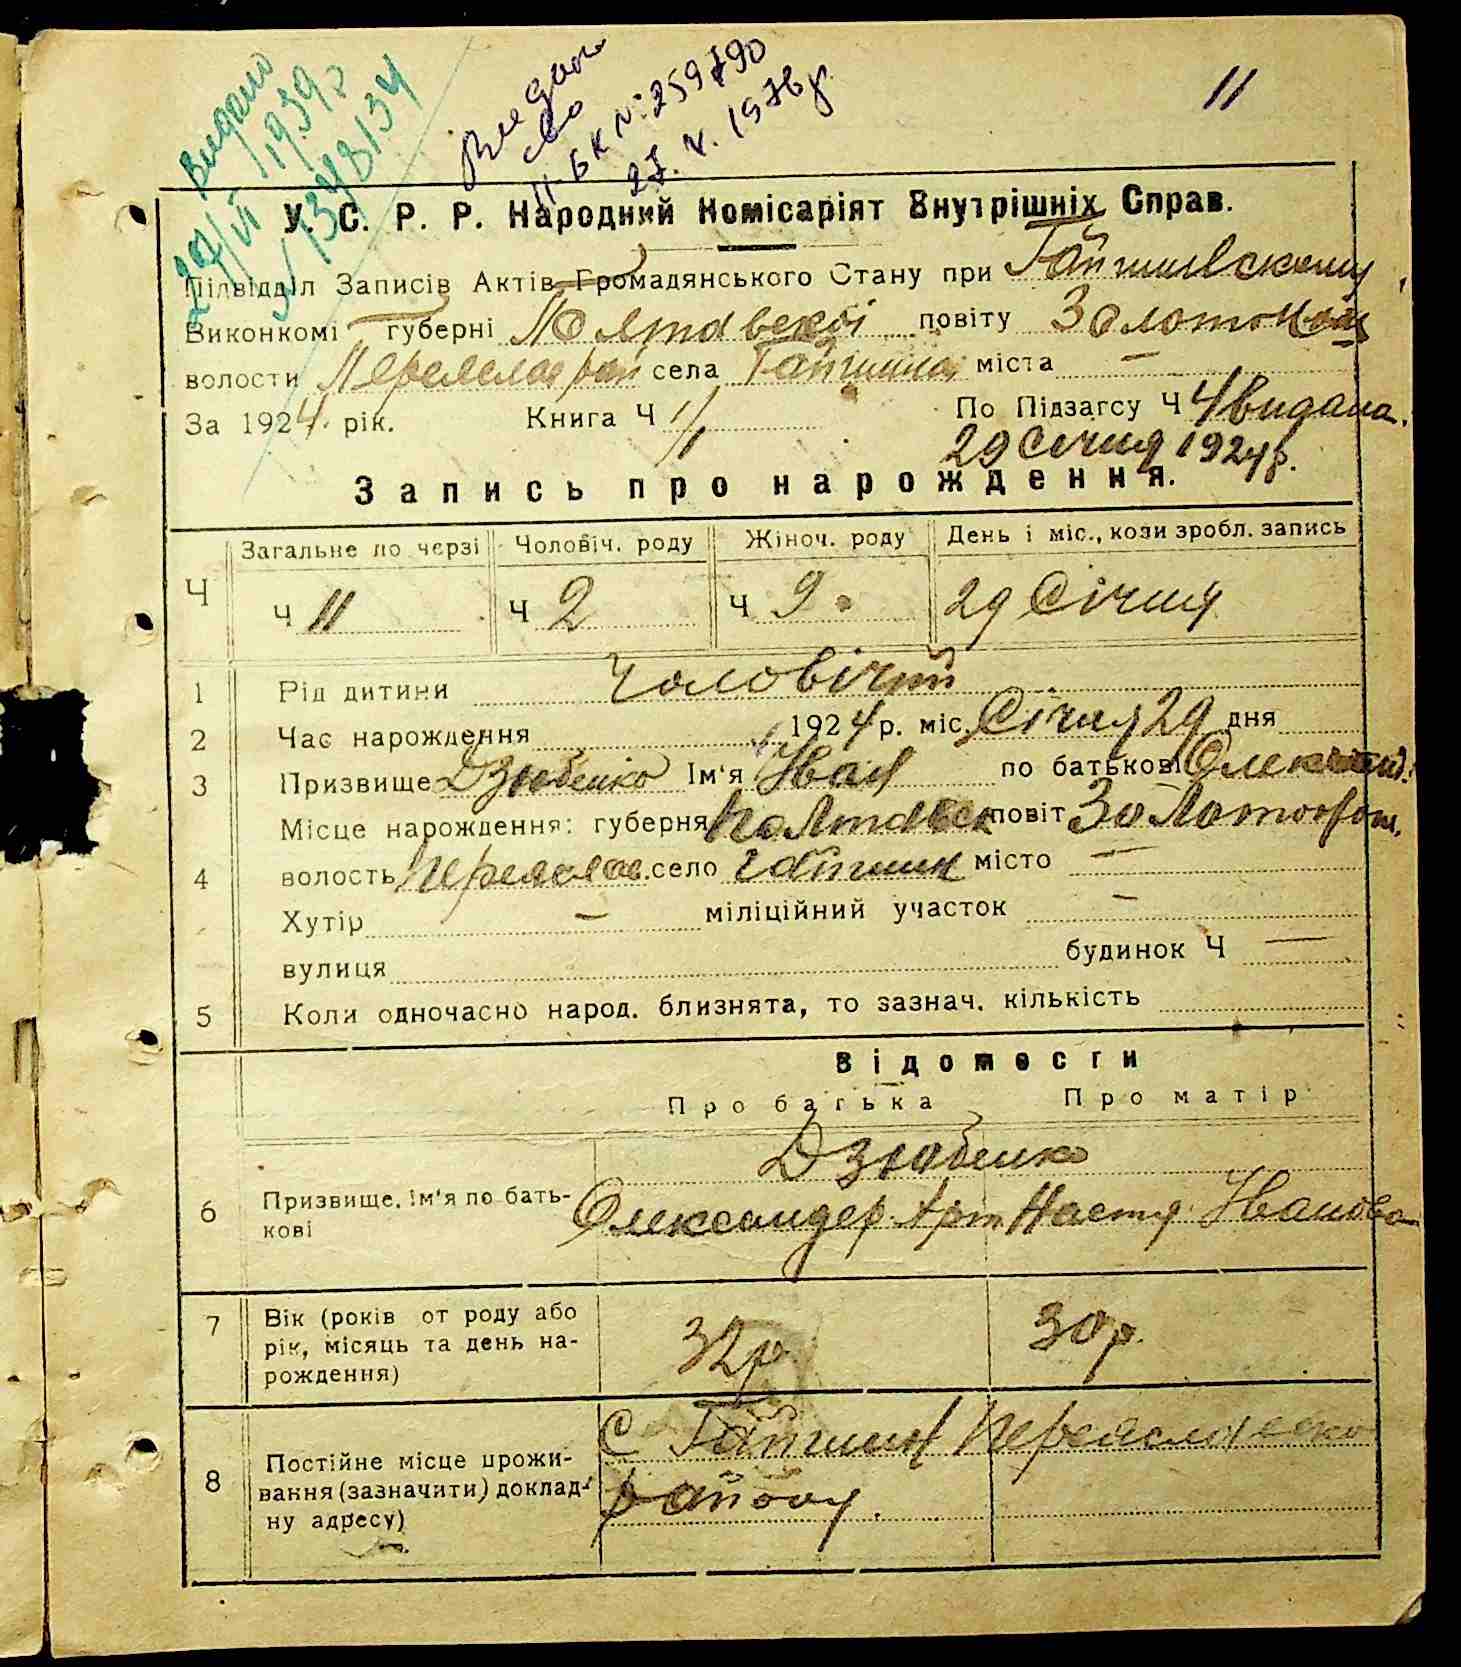 Видано
207/VII 1939 р
Видано
св
II-БК №: 259790
27. V. 1976 р.
11
У. С. Р. Р. Народний Комісаріят Внутрішніх Справ.
Підвідділ Записів Актів Громадянського Стану при Гайшинскому
Виконкомі губерні Полтавскоі повіту Золотонош
волости Переяслав рай села Гайшина міста —
За 1924 рік. Книга Ч 1/ По Підзагсу Ч 4 видана.
29 Січня 1924 р.
Запись про народження.
Загальне по черзі Чоловіч. роду Жіноч. роду День і міс., коли зробл. запись
Ч Ч 11 Ч 2 Ч 9 29 Січня
1 Рід дитини Чоловічий
2 Час народження 1924 р. міс. Січня 29 дня
3 Призвище Дзюбенко Ім'я Іван по батькові Олександ.
Місце народження: губерня Полтавск повіт Золотонош.
4 волость Переяслав. село Гайшин місто —
Хутір — міліційний участок —
вулиця будинок Ч —
5 Коли одночасно народ. близнята, то зазнач. кількість
Відомости
Про батька Про матір
Дзюбенко
6 Призвище, ім'я по бать-
кові
Олександер Арт Настя Іванова
7 Вік (років от роду або
рік, місяць та день на-
рождення)
32 р 30 р.
8 Постійне місце прожи-
вання (зазначити) доклад-
ну адресу)
С Гайшин Переяславско
району.